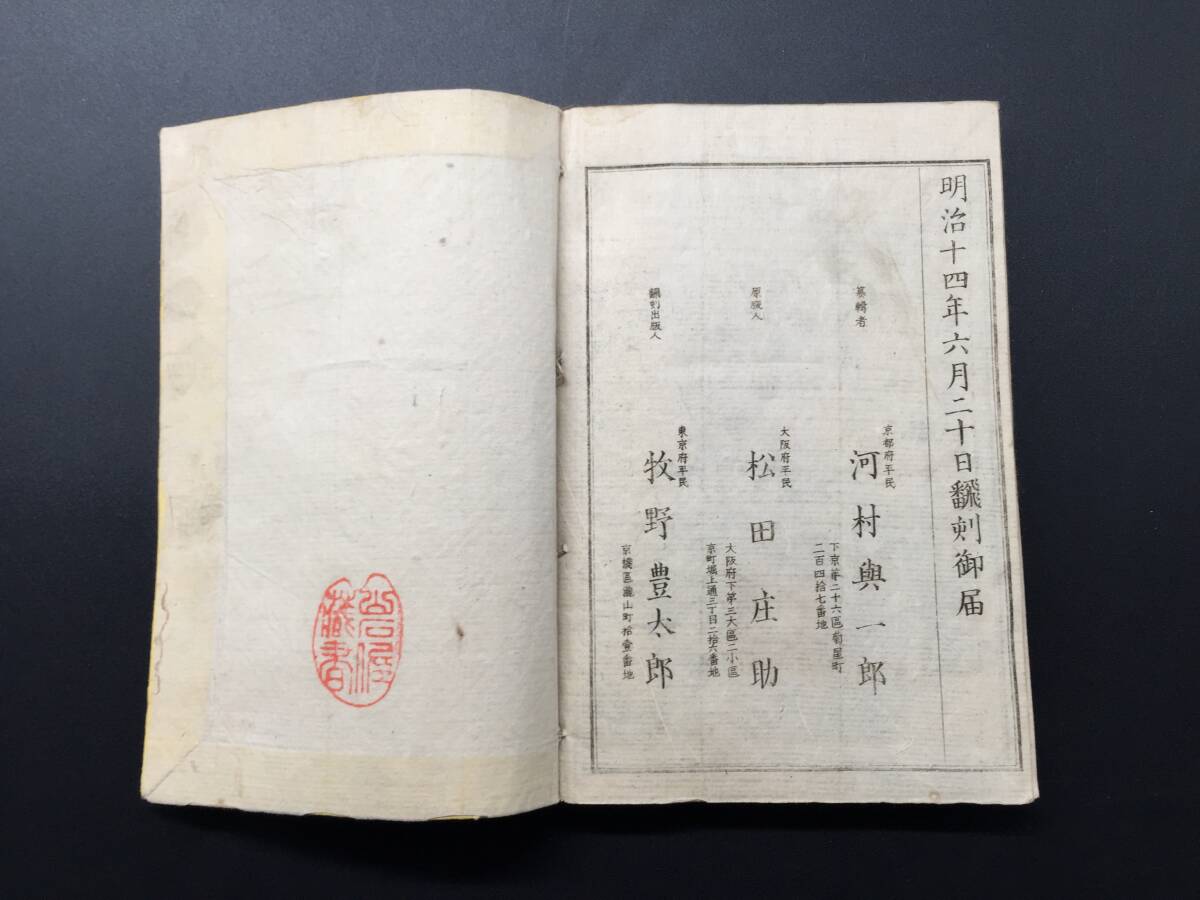 明治十四年六月二十日飜刻御届
纂輯者
京都府平民
河村與一郎
下京第二十六區菊屋町
二百四拾七番地
原版人
大阪府平民
松田庄助
大阪府下第三大區二小區
京町堀上通三丁目二拾六番地
飜刻出版人
東京府平民
牧野豊太郎
京橋區瀧山町拾壹番地
藏書